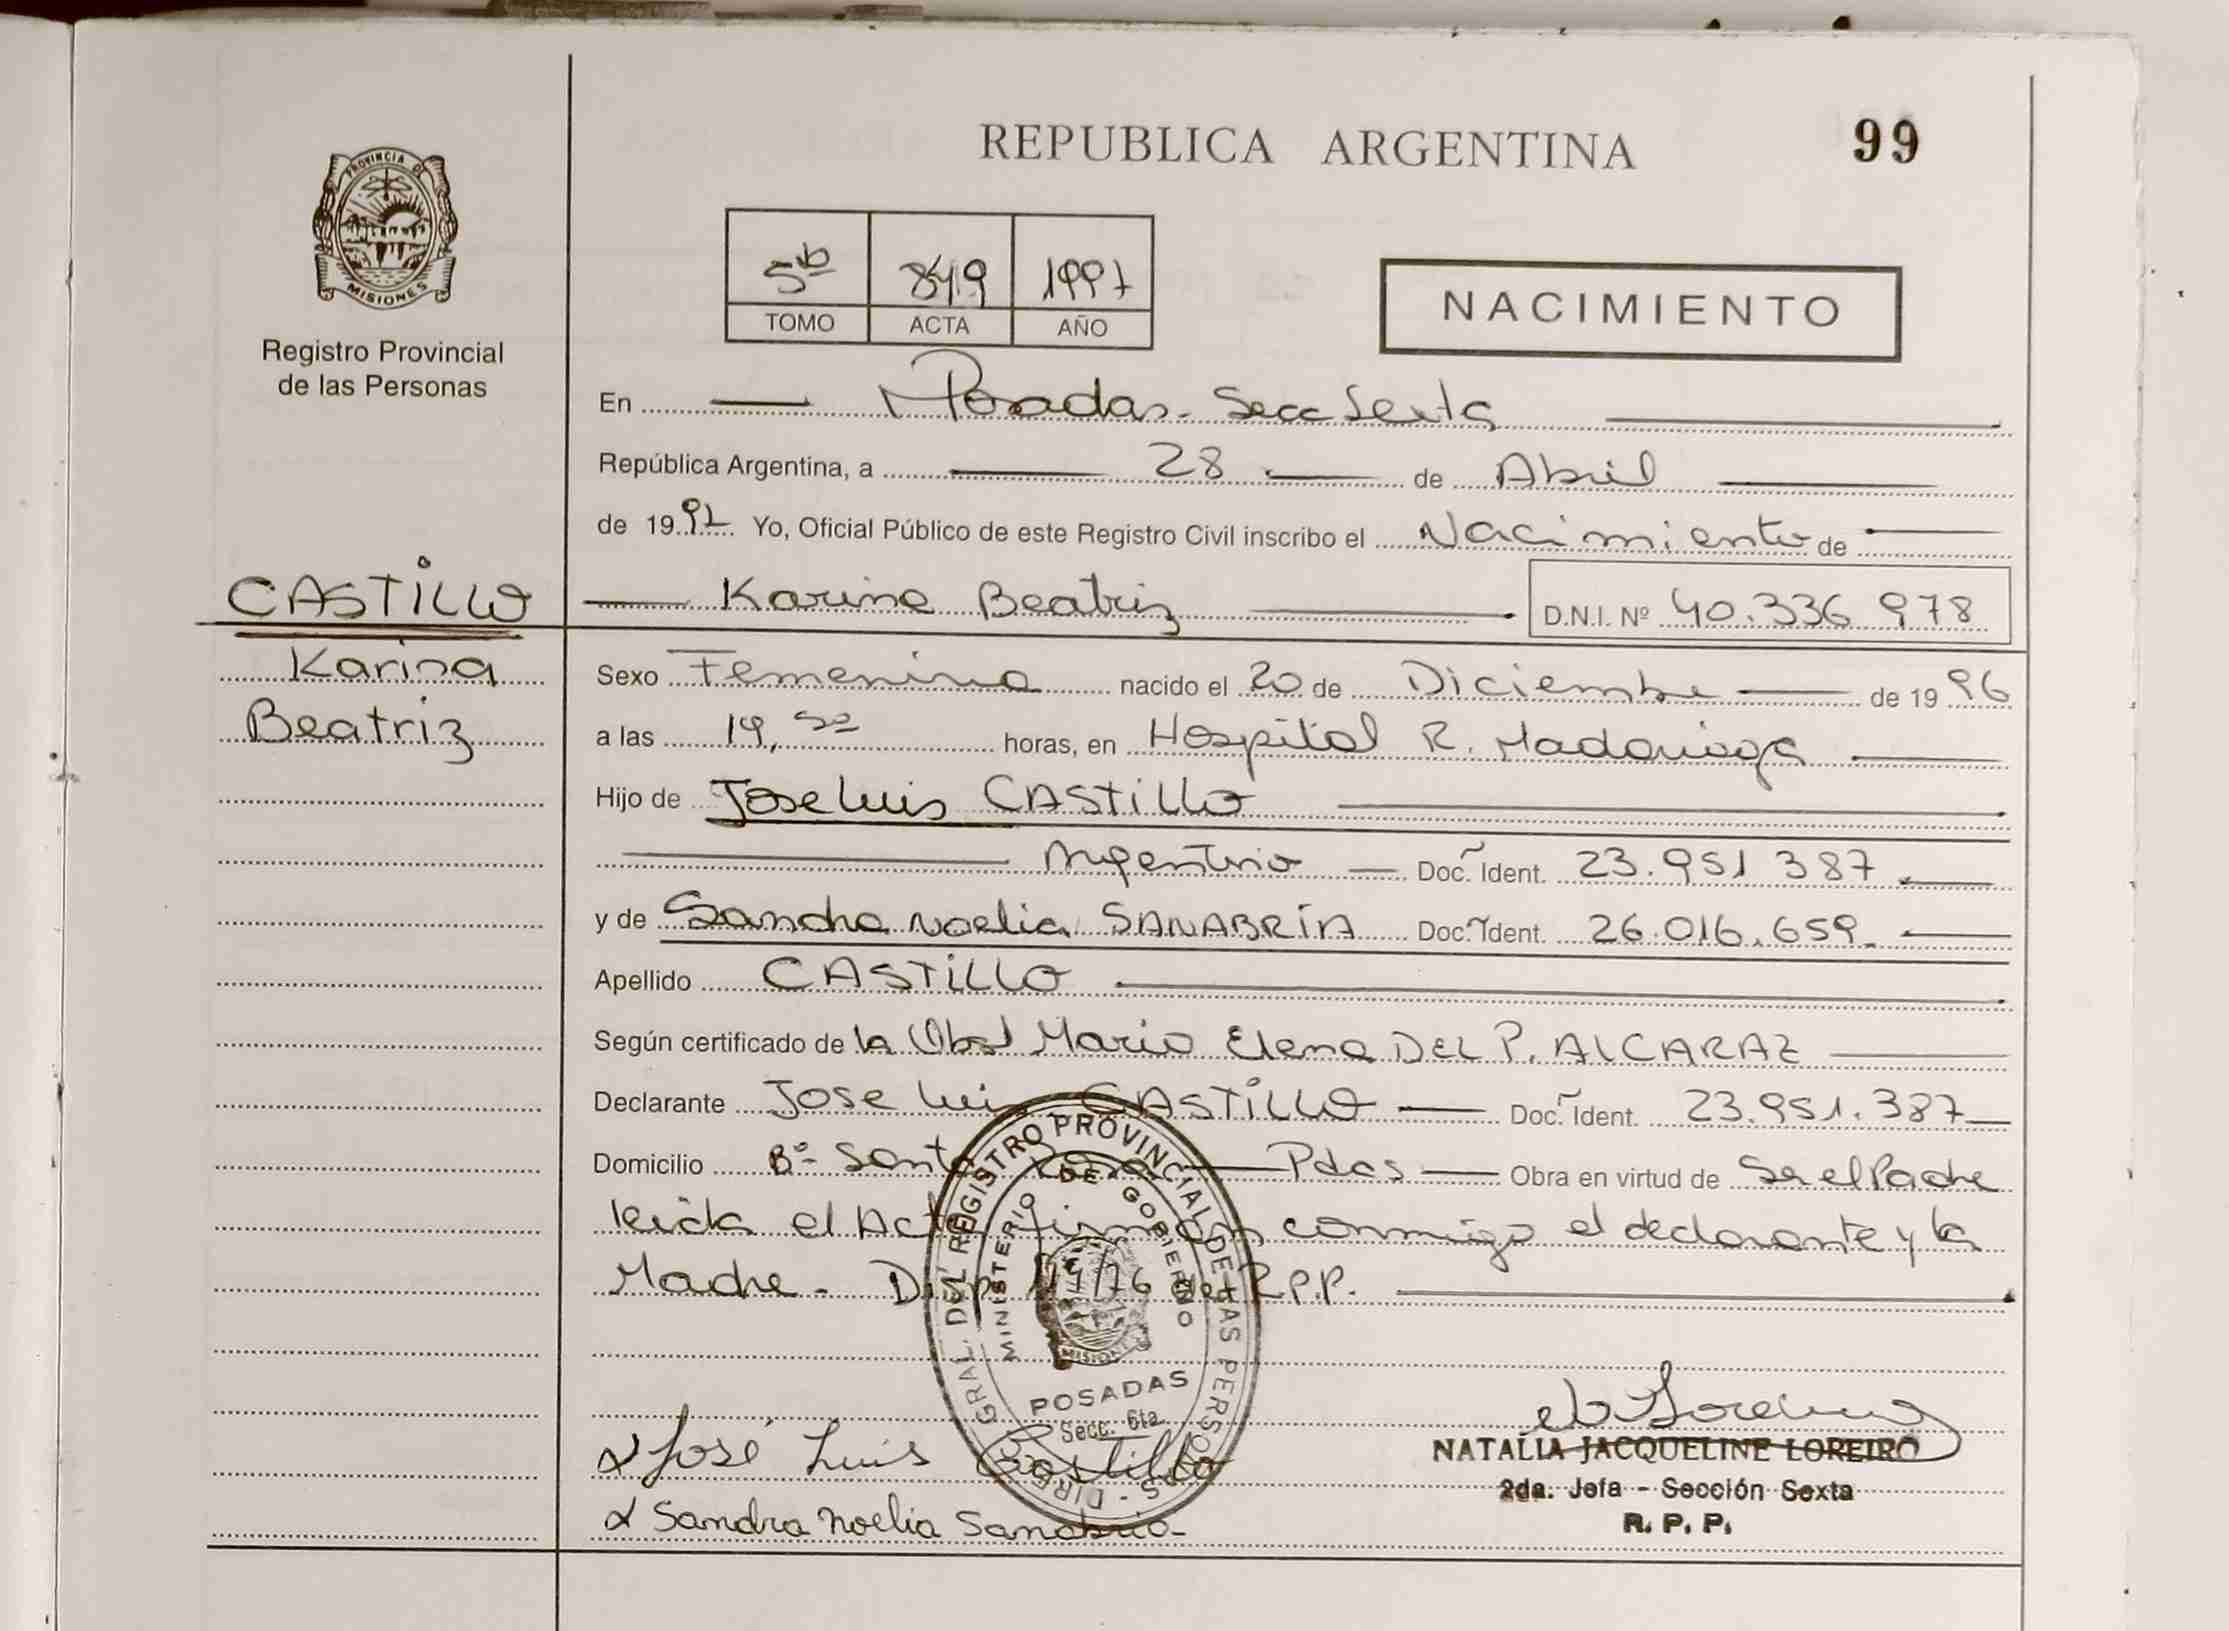 REPUBLICA ARGENTINA
99
PROVINCIA DE
MISIONES
Registro Provincial
de las Personas
5º 849 1997
TOMO ACTA AÑO
NACIMIENTO
En Posadas - Secc Sexta
República Argentina, a 28 de Abril
de 1997. Yo, Oficial Público de este Registro Civil inscribo el Nacimiento de
CASTILLO
Karina Beatriz D.N.I. Nº 40.336.978
Karina
Beatriz
Sexo Femenino nacido el 20 de Diciembre de 1996
a las 19, horas, en Hospital R. Madariaga
Hijo de Jose Luis CASTILLO
Argentino Doc. Ident. 23.951.387
y de Sandra Noelia SANABRÍA Doc. Ident. 26.016.659.
Apellido CASTILLO
Según certificado de la Obst Maria Elena DEL P. ALCARAZ
Declarante Jose Luis CASTILLO Doc. Ident. 23.951.387
Domicilio Bº Santa Pdas Obra en virtud de Ser el Padre
leida el Acta firman conmigo el declarante y la
Madre - Disp. /76 del R.P.P.
DIREC GRAL. DEL REGISTRO PROVINCIAL DE LAS PERSONAS
MINISTERIO DE GOBIERNO
MISIONES
POSADAS
Secc. 6ta
José Luis Castillo
Sandra Noelia Sanabria
NATALIA JACQUELINE LOREIRO
2da. Jefa - Sección Sexta
R. P. P.